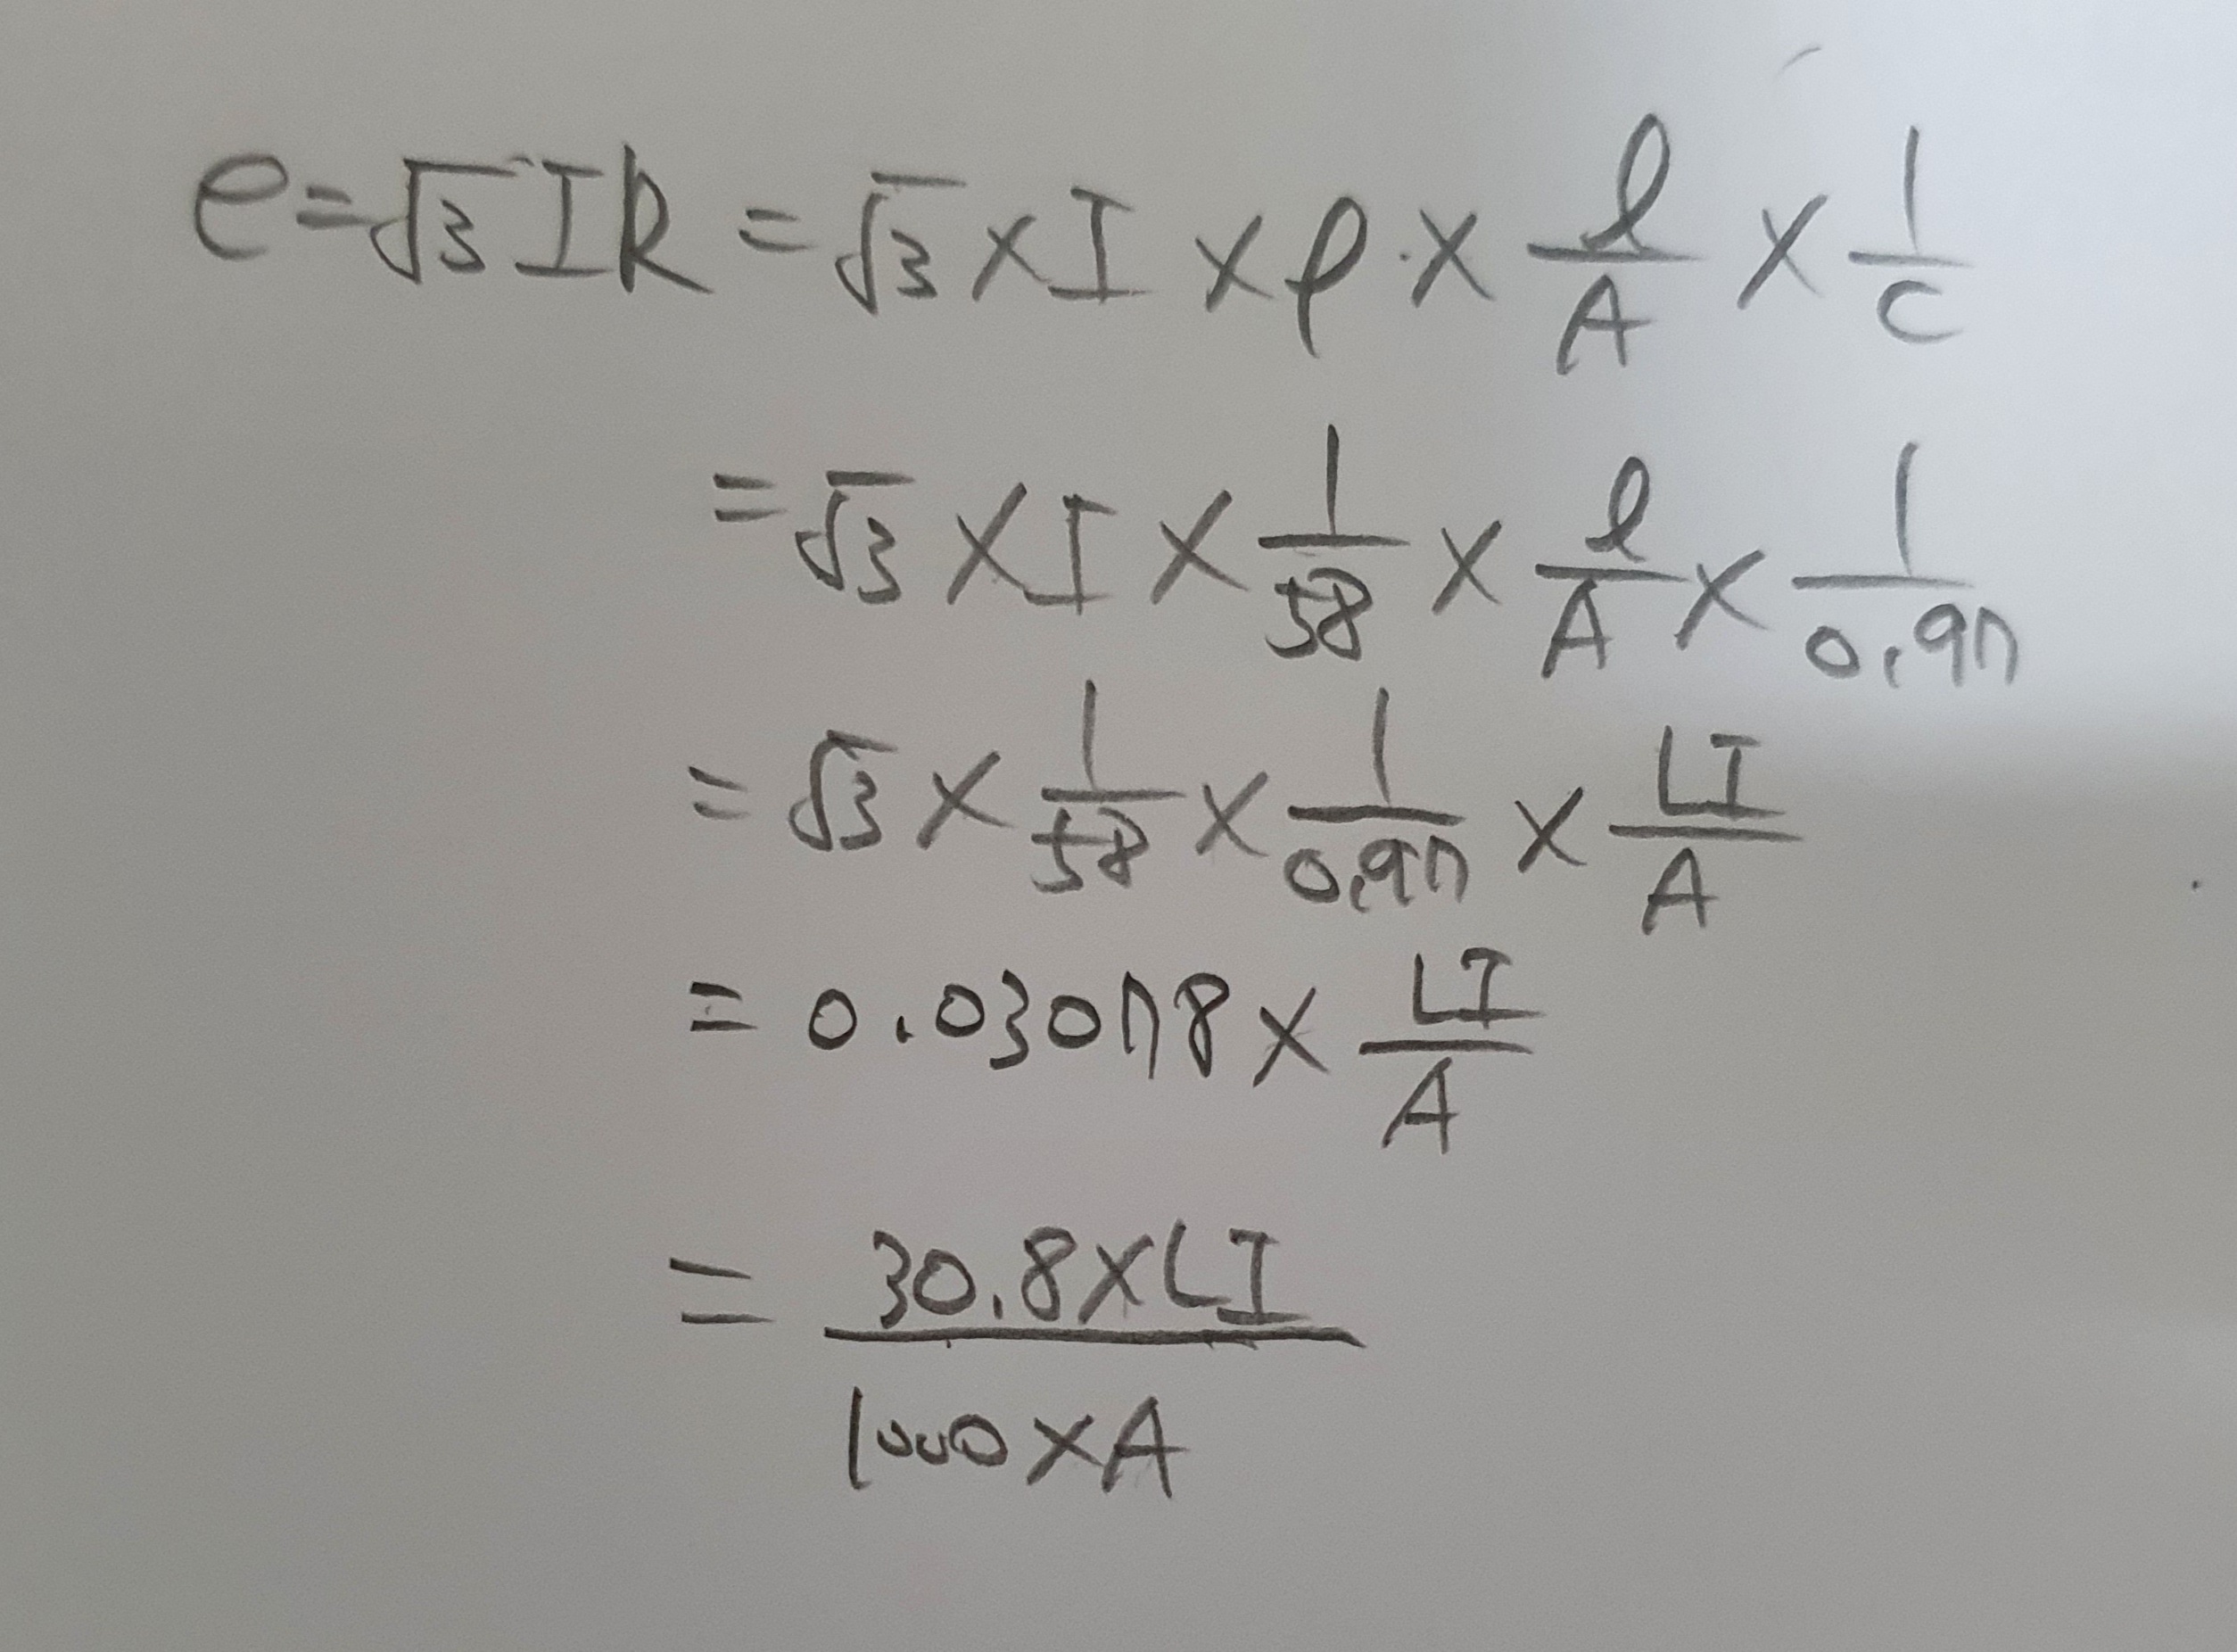 e=√3IR = √3×I×ρ·×ℓ/A×1/C
=√3×I×1/58×ℓ/A×1/0.97
=√3×1/58×1/0.97×LI/A
=0.03078×LI/A
=30.8×LI/1000×A